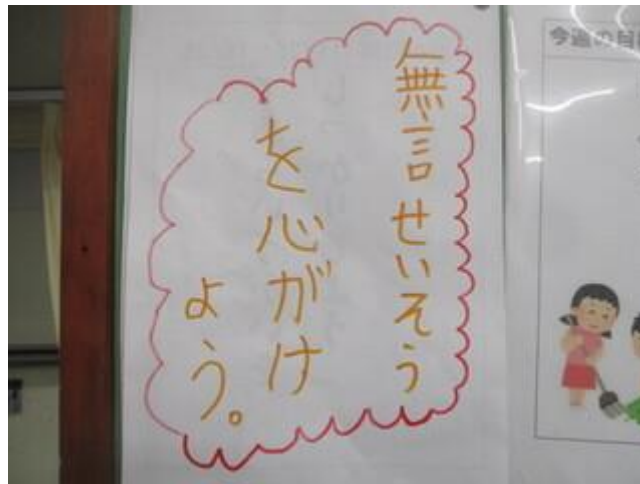 無言せいそう
を心がけ
よう。
今週の目